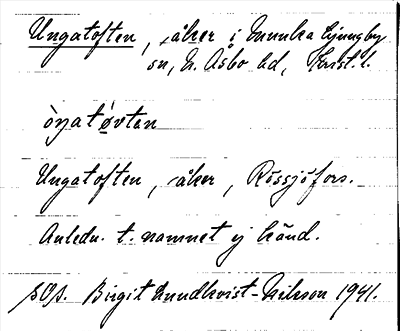 Ungatoften, åker i Munka Ljungby
sn, N. Åsbo hd, Krist. l.
òŋatòvtan
Ungatoften, åker, Rössjöfors.
Anledn. t. namnet ej känd.
SOA. Birgit Lundkvist-Nilsson 1941.